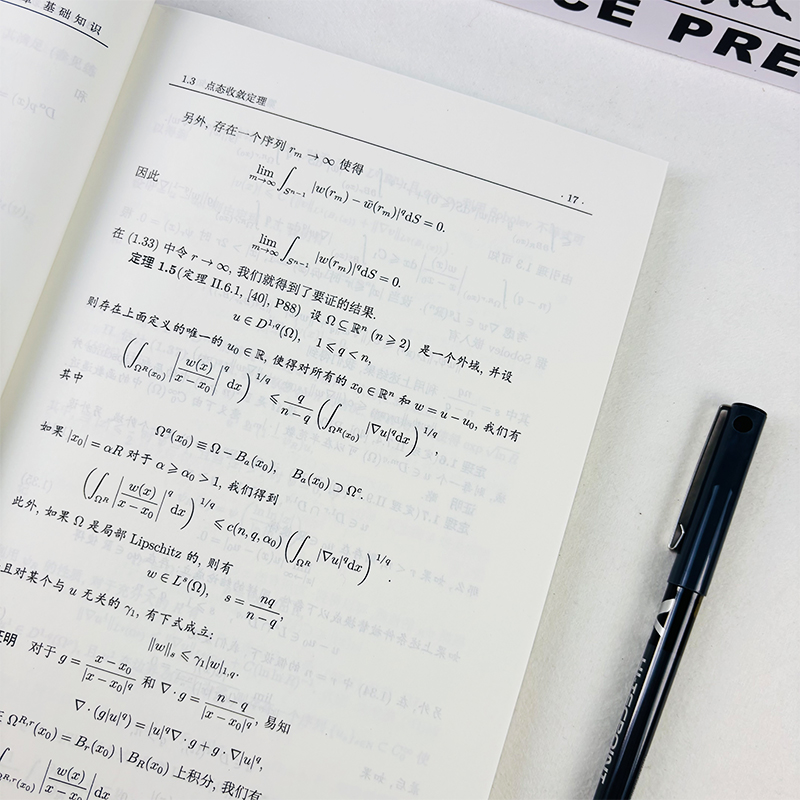 基础知识
1.3 点态收敛定理
· 17 ·
另外, 存在一个序列 r_m → ∞ 使得
lim_{m→∞} ∫_{S^{n−1}} |w(r_m) − w̄(r_m)|^q dS = 0.
因此
lim_{m→∞} ∫_{S^{n−1}} |w(r_m)|^q dS = 0.
在 (1.33) 中令 r → ∞, 我们就得到了要证的结果.
定理 1.5 (定理 II.6.1, [40], P88) 设 Ω ⊆ ℝ^n (n ⩾ 2) 是一个外域, 并设
u ∈ D^{1,q}(Ω), 1 ⩽ q < n,
则存在上面定义的唯一的 u_0 ∈ ℝ, 使得对所有的 x_0 ∈ ℝ^n 和 w = u − u_0, 我们有
(∫_{Ω^R(x_0)} |w(x)/(x − x_0)|^q dx)^{1/q} ⩽ q/(n − q) (∫_{Ω^R(x_0)} |∇u|^q dx)^{1/q},
其中
Ω^a(x_0) ≡ Ω − B_a(x_0), B_a(x_0) ⊃ Ω^c.
如果 |x_0| = αR 对于 α ⩾ α_0 > 1, 我们得到
(∫_{Ω^R} |w(x)/(x − x_0)|^q dx)^{1/q} ⩽ c(n, q, α_0) (∫_{Ω^R} |∇u|^q dx)^{1/q}.
此外, 如果 Ω 是局部 Lipschitz 的, 则有
w ∈ L^s(Ω), s = nq/(n − q),
且对某个与 u 无关的 γ_1, 有下式成立:
‖w‖_s ⩽ γ_1|w|_{1,q}.
证明 对于 g = (x − x_0)/|x − x_0|^q 和 ∇·g = (n − q)/|x − x_0|^q, 易知
∇·(g|u|^q) = |u|^q∇·g + g·∇|u|^q,
∈ Ω^{R,r}(x_0) = B_r(x_0) \ B_R(x_0) 上积分, 我们有
∫_{Ω^{R,r}(x_0)} |w(x)/(x − x_0)| dx
CE PRE